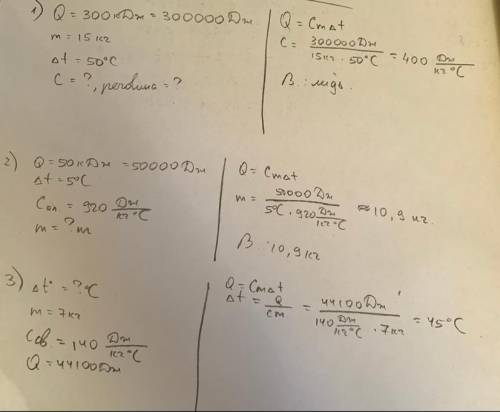 1) Q = 300кДж = 300000Дж
m = 15кг
Δt = 50°C
C = ?, речовина = ?
Q = CmΔt
C = 300000Дж / 15кг · 50°C = 400 Дж / кг°C
В : мідь.
2) Q = 50кДж = 50000Дж
Δt = 5°C
Cал = 920 Дж / кг°C
m = ? m
Q = CmΔt
m = 50000Дж / 5°C · 920 Дж / кг°C ≈ 10,9 кг.
В : 10,9 кг
3) Δt° = ?°C
m = 7кг
Cсв = 140 Дж / кг°C
Q = 44100Дж
Q = CmΔt
Δt = Q / cm = 44100Дж / 140 Дж / кг°C · 7кг = 45°C